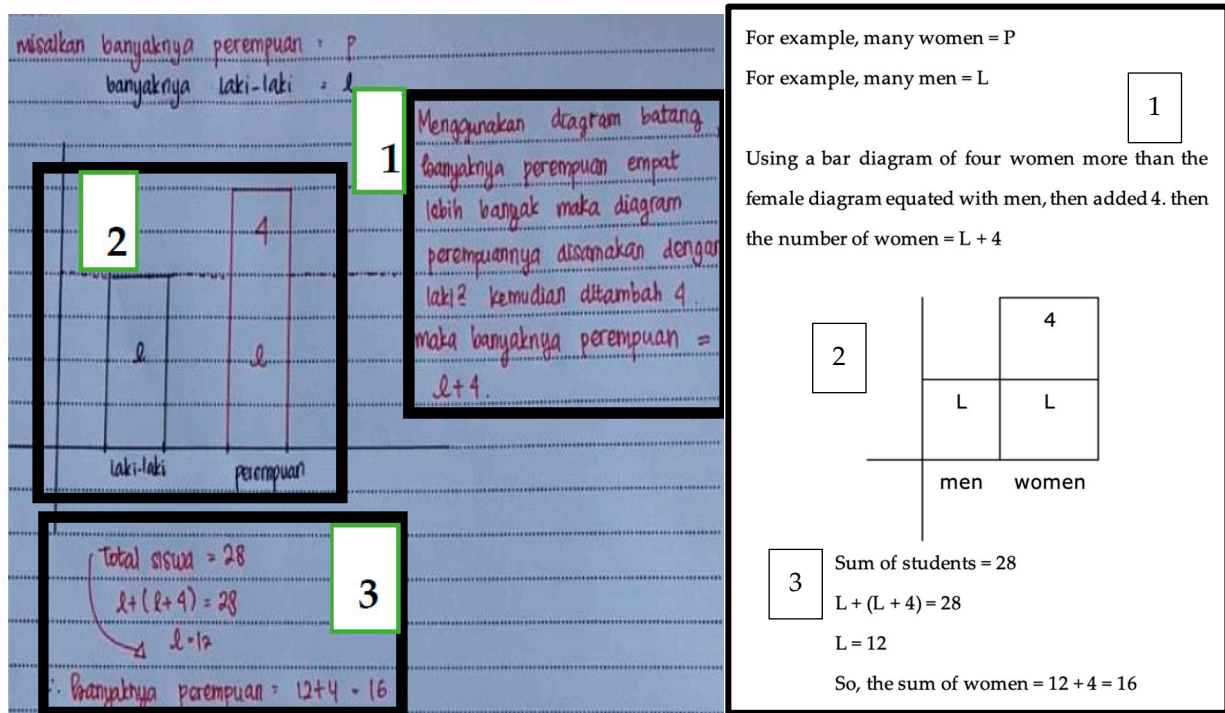 misalkan banyaknya perempuan = P
banyaknya laki-laki = l
1
Menggunakan diagram batang,
banyaknya perempuan empat
lebih banyak maka diagram
perempuannya disamakan dengan
laki2 kemudian ditambah 4.
maka banyaknya perempuan =
l+4.
2
4
l
l
laki-laki
perempuan
3
Total siswa = 28
l+(l+4) = 28
l=12
∴ Banyaknya perempuan = 12+4 = 16
For example, many women = P
For example, many men = L
1
Using a bar diagram of four women more than the
female diagram equated with men, then added 4. then
the number of women = L + 4
2
4
L
L
men
women
3
Sum of students = 28
L + (L + 4) = 28
L = 12
So, the sum of women = 12 + 4 = 16